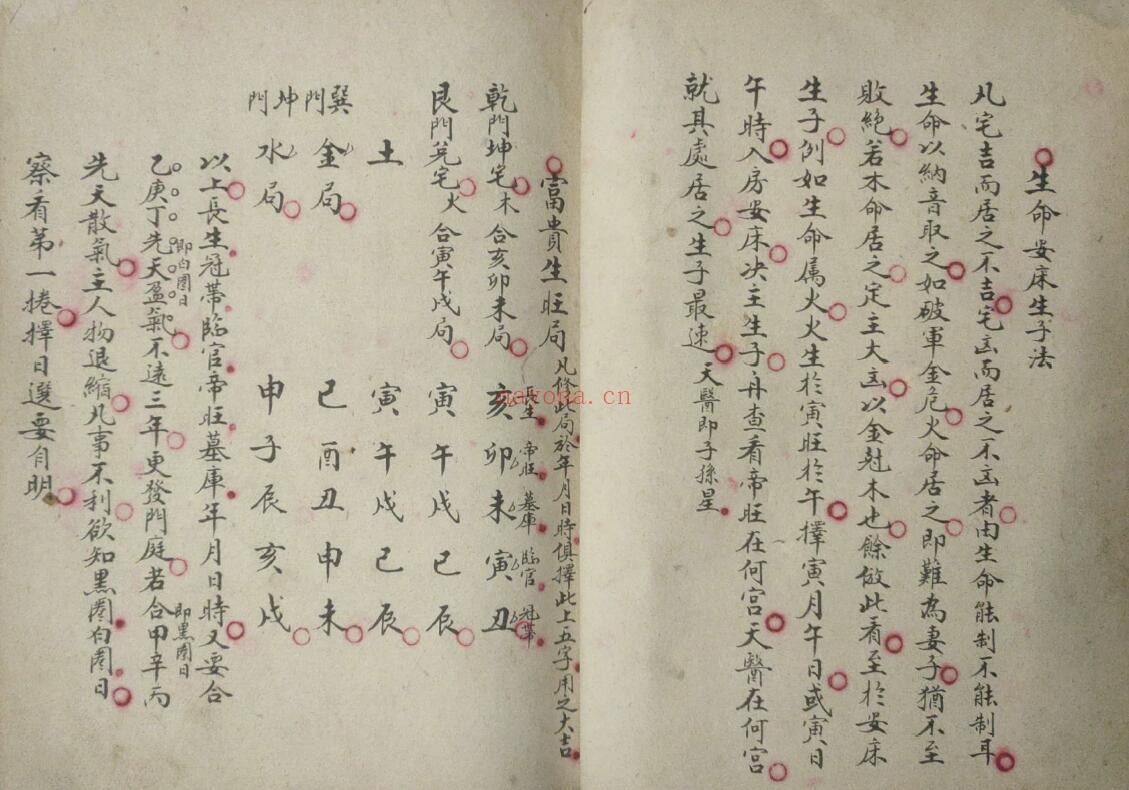 生命安床生子法
凡宅吉而居之不吉宅凶而居之不凶者由生命能制不能制耳
生命以納音取之如破軍金危火命居之即難為妻子猶不至
敗絶若木命居之定主大凶以金尅木也餘倣此看至於安床
生子例如生命属火火生於寅旺於午擇寅月午日或寅日
午時入房安床决主生子再查看帝旺在何宫天醫在何宫
就其處居之生子最速天醫即子孫星
富貴生旺局凡修此局於年月日時俱擇此上五字用之大吉
長生 帝旺 墓庫 臨官 冠帶
乾門坤宅木合亥卯未局 亥卯未寅丑
艮門兌宅火合寅午戌局 寅午戌巳辰
土 寅午戌巳辰
巽門金局 巳酉丑申未
坤門水局 申子辰亥戌
以上長生冠帶臨官帝旺墓庫年月日時又要合
乙庚丁先天盈氣不遠三年更發門庭者合甲辛丙
即白圈日 即黑圈日
先天散氣主人物退縮凡事不利欲知黑圈白圈日
察看第一捲擇日選要自明
nayona.cn